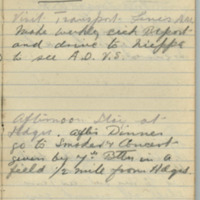 Visit Transport Lines
Make weekly cash report
and drive to Dieppe
to see A.D.V.S.
Afternoon Stay at
Hdqrs. After Dinner
go to Smoker & Concert
given by 7th Bttn in a
field 1/2 mile from Hdqrs.